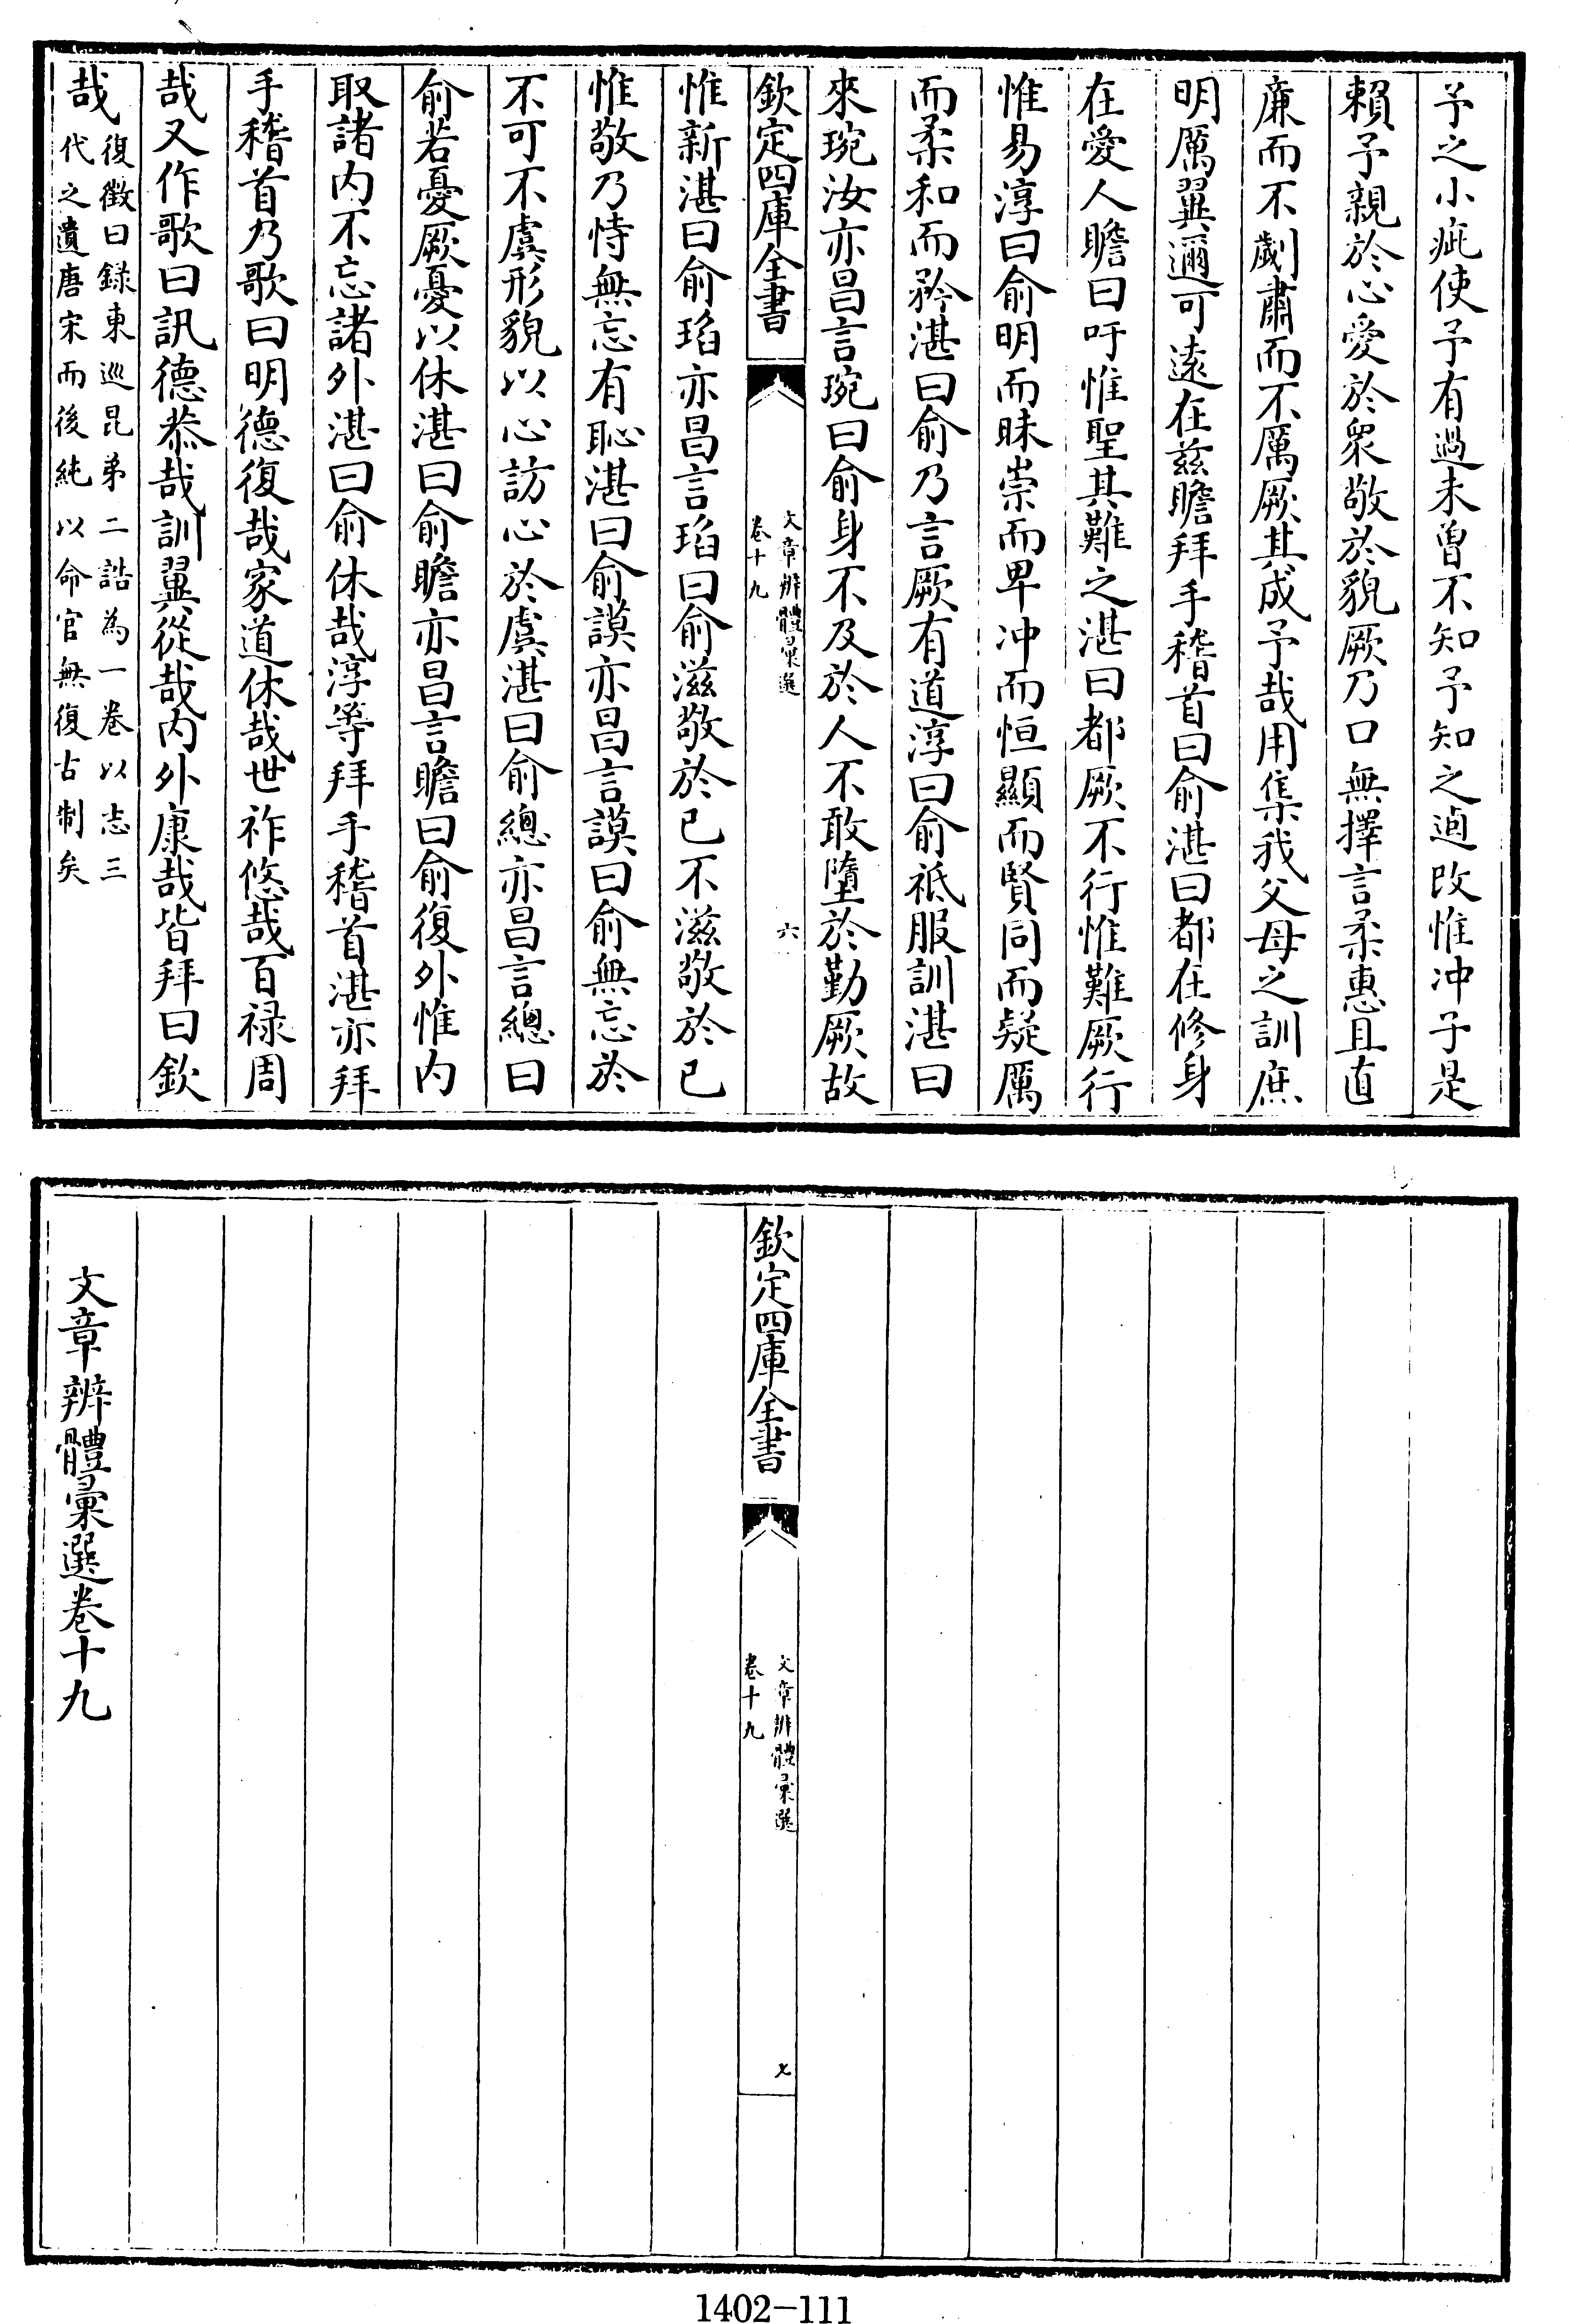 予之小疵使予有過未曾不知予知之逌改惟冲子是
賴予親於心愛於衆敬於貌厥乃口無擇言柔惠且直
廉而不劌肅而不厲厥其成予哉用集我父母之訓庶
明厲翼邇可逺在兹瞻拜手稽首曰俞湛曰都在修身
在愛人瞻曰吁惟聖其難之湛曰都厥不行惟難厥行
惟易淳曰俞明而昧崇而卑冲而恒顯而賢同而疑厲
而柔和而矜湛曰俞乃言厥有道淳曰俞祗服訓湛曰
來琬汝亦昌言琬曰俞身不及於人不敢墮於勤厥故
欽定四庫全書
文章辨體彚選
卷十九
六
惟新湛曰俞瑫亦昌言瑫曰俞滋敬於已不滋敬於已
惟敬乃恃無忘有恥湛曰俞謨亦昌言謨曰俞無忘於
不可不虞形貌以心訪心於虞湛曰俞總亦昌言總曰
俞若憂厥憂以休湛曰俞瞻亦昌言瞻曰俞復外惟内
取諸内不忘諸外湛曰俞休哉淳等拜手稽首湛亦拜
手稽首乃歌曰明德復哉家道休哉世祚悠哉百禄周
哉又作歌曰訊德恭哉訓翼從哉内外康哉皆拜曰欽
哉
復徴曰錄東巡昆弟二誥為一卷以志三
代之遺唐宋而後純以命官無復古制矣
欽定四庫全書
文章辨體彚選
卷十九
七
文章辨體彚選卷十九
1402-111